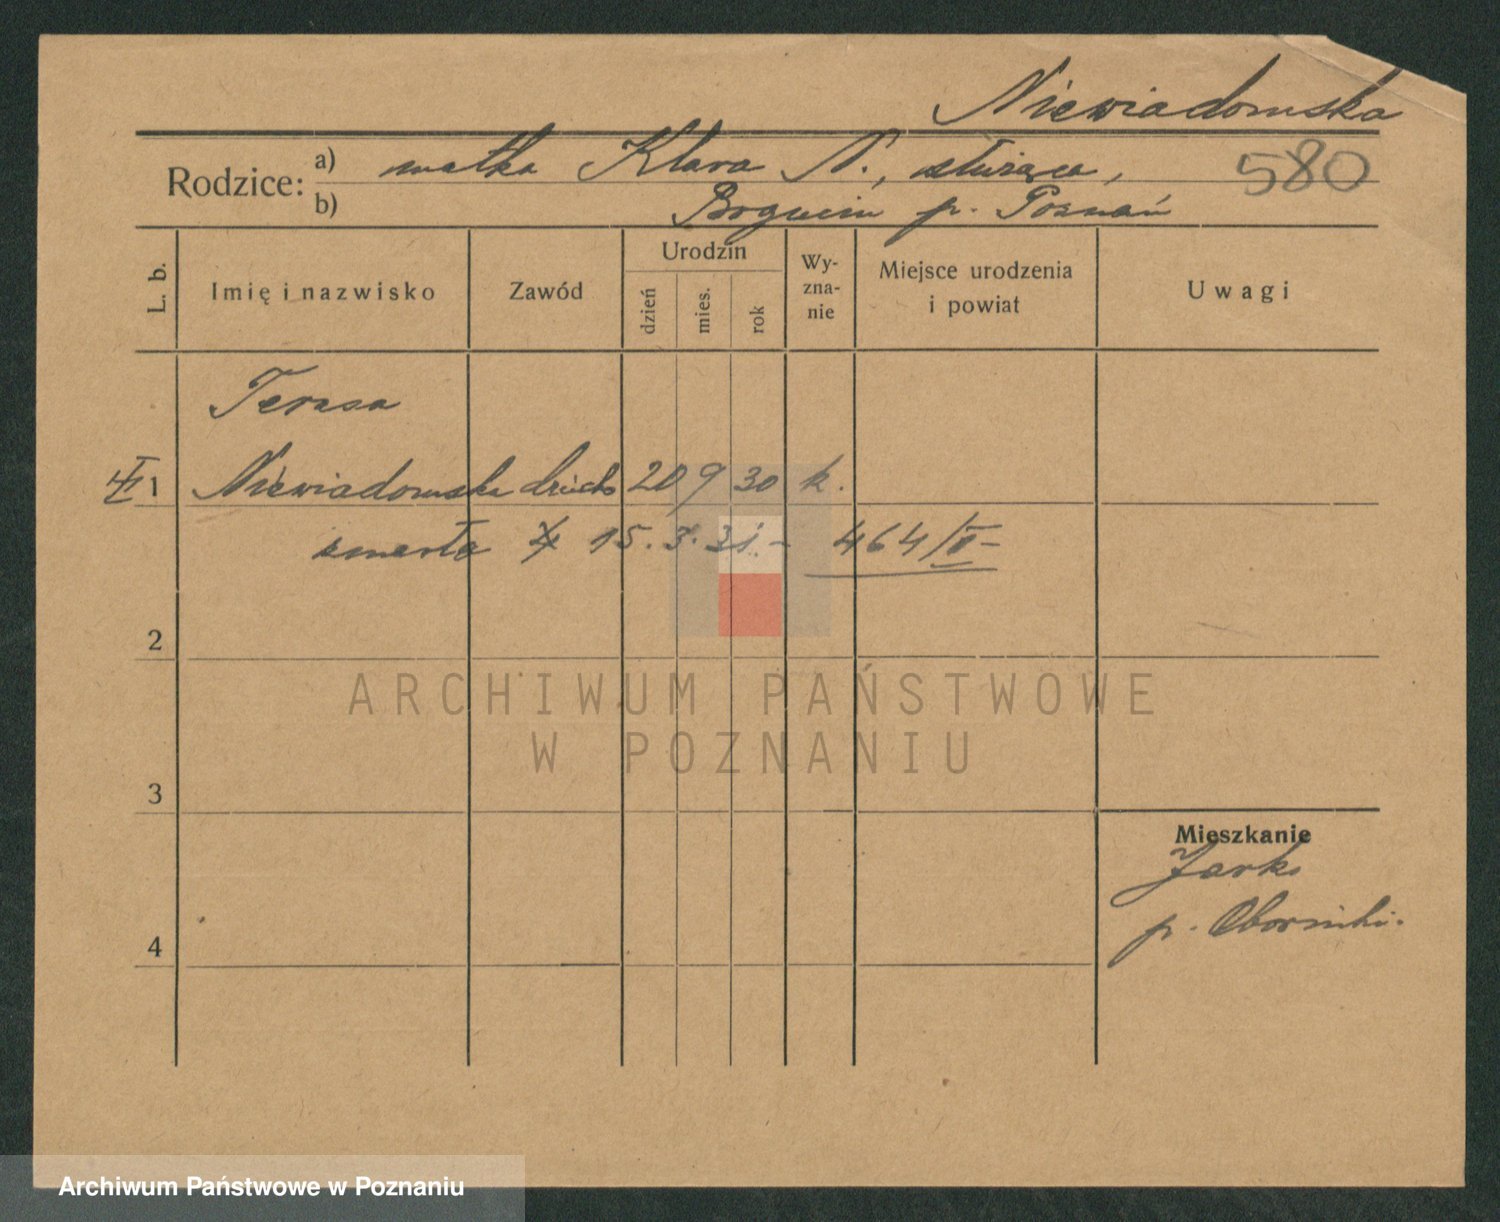 Niewiadomska
Rodzice: a) matka Klara N., służąca, 580
b) Bogucin p. Poznań
L. b. Imię i nazwisko Zawód Urodzin dzień mies. rok Wyznanie Miejsce urodzenia i powiat Uwagi
Teresa
1 Niewiadomska dziecko 20 9 30 k.
zmarła 15. 3. 31. - 464/II -
2
ARCHIWUM PAŃSTWOWE
W POZNANIU
3
Mieszkanie
p. Oborniki.
4
Archiwum Państwowe w Poznaniu